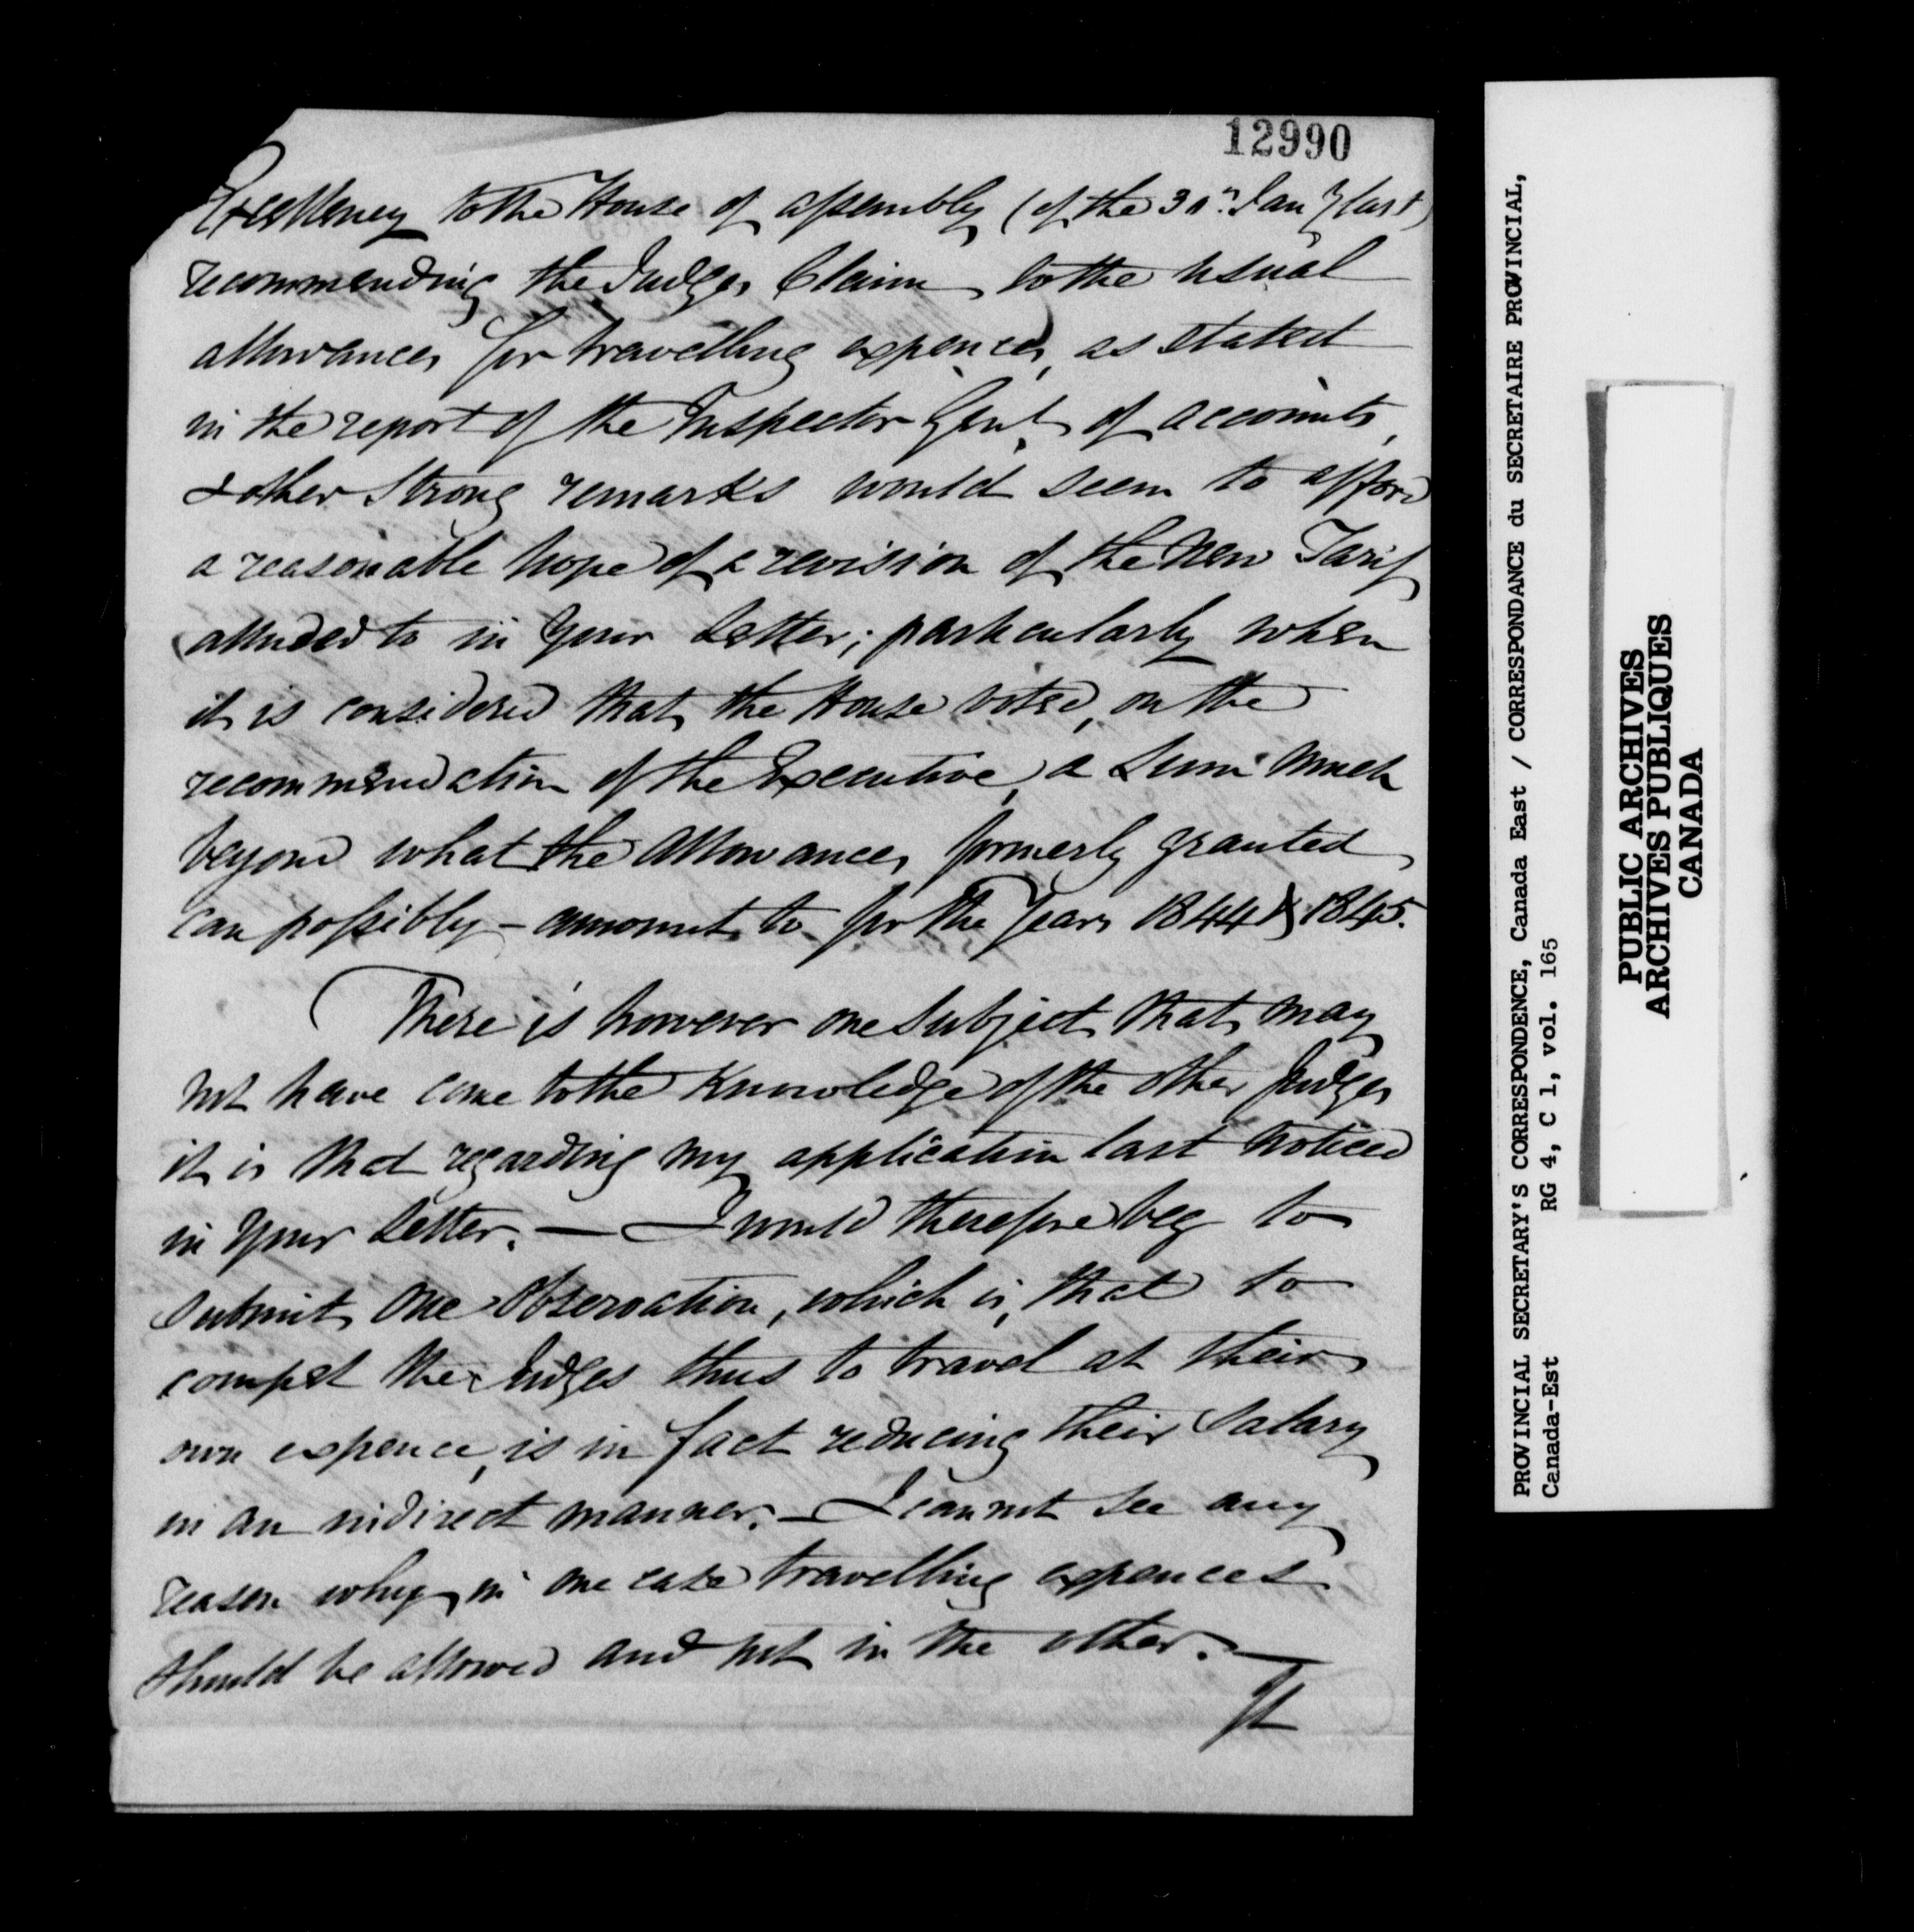 12990
Excellency to the House of assembly (of the 30th Jany last)
recommending the Judges Claim to the usual
allowances for travelling expences, as stated
in the report of the Inspector Genl of accounts,
& other Strong remarks would seem to afford
a reasonable hope of a revision of the New Tarif
alluded to in Your Letter; particularly when
it is considered that the House voted, on the
recommendation of the Executive, a Sum much
beyond what the allowances formerly granted
can possibly - amount to for the Years 1844 & 1845.
There is however one Subject that may
not have come to the Knowledge of the other Judges
it is that regarding my application last noticed
in Your Letter. — I would therefore beg to
submit one observation, which is, that to
compel the Judges thus to travel at their
own expence, is in fact reducing their Salary
in an indirect manner. — I cannot see any
reason why in one case travelling expences
should be allowed and not in the other. —
It
PROVINCIAL SECRETARY'S CORRESPONDENCE, Canada East / CORRESPONDANCE du SECRETAIRE PROVINCIAL,
Canada-Est RG 4, C 1, vol. 165
PUBLIC ARCHIVES
ARCHIVES PUBLIQUES
CANADA